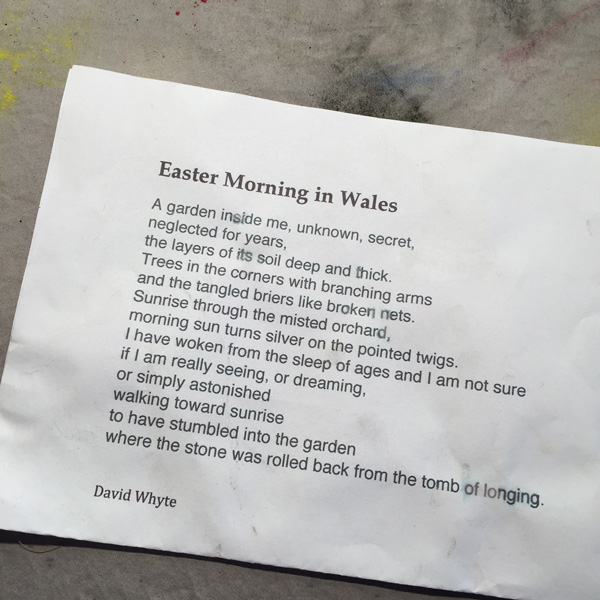 Easter Morning in Wales
A garden inside me, unknown, secret,
neglected for years,
the layers of its soil deep and thick.
Trees in the corners with branching arms
and the tangled briers like broken nets.
Sunrise through the misted orchard,
morning sun turns silver on the pointed twigs.
I have woken from the sleep of ages and I am not sure
if I am really seeing, or dreaming,
or simply astonished
walking toward sunrise
to have stumbled into the garden
where the stone was rolled back from the tomb of longing.
David Whyte